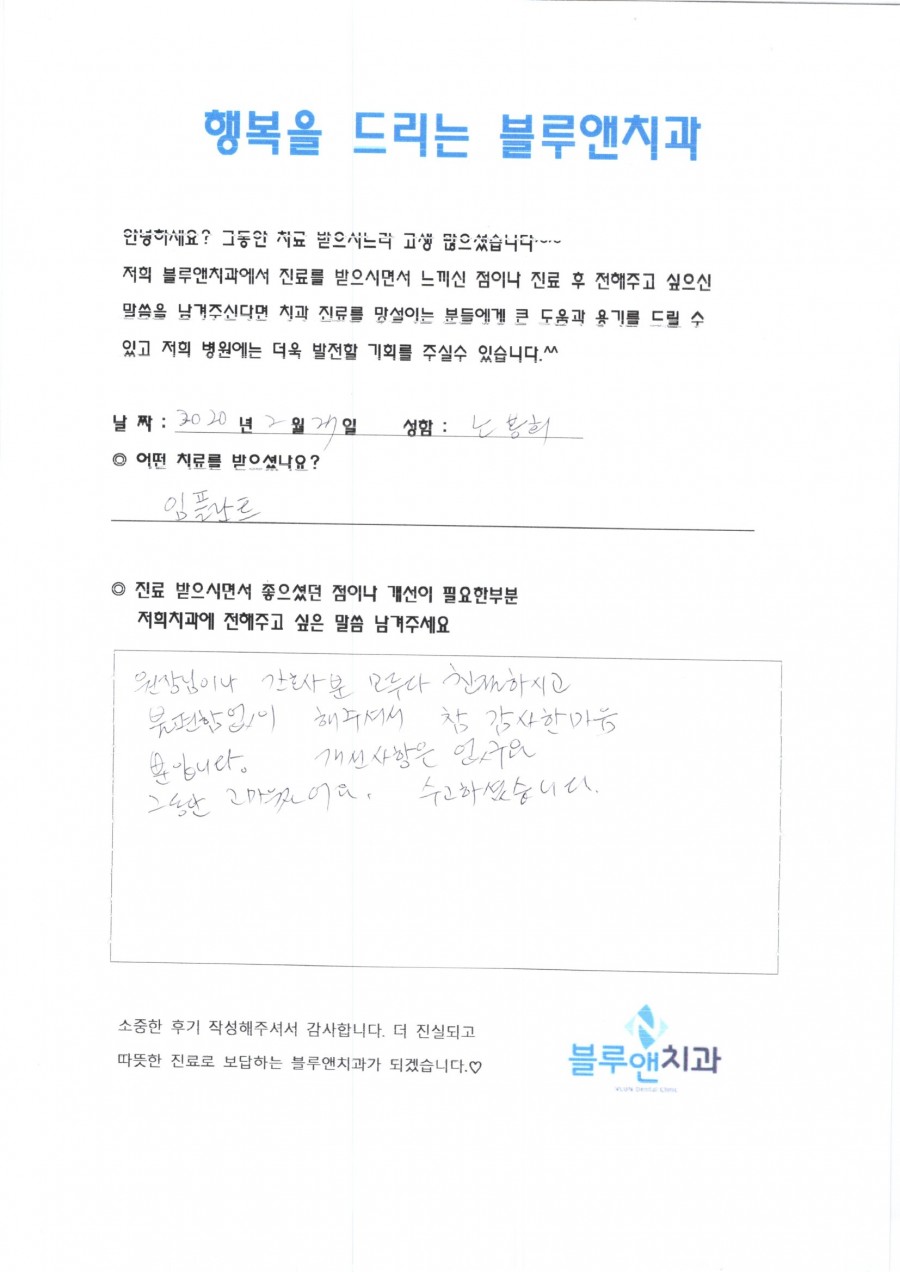 행복을 드리는 블루앤치과
안녕하세요? 그동안 치료 받으시느라 고생 많으셨습니다~~
저희 블루앤치과에서 진료를 받으시면서 느끼신 점이나 진료 후 전해주고 싶으신
말씀을 남겨주신다면 치과 진료를 망설이는 분들에게 큰 도움과 용기를 드릴 수
있고 저희 병원에는 더욱 발전할 기회를 주실수 있습니다.^^
날 짜 : 2020 년 2 월 일 성함 :
◎ 어떤 치료를 받으셨나요?
임플란트
◎ 진료 받으시면서 좋으셨던 점이나 개선이 필요한부분
저희치과에 전해주고 싶은 말씀 남겨주세요
원장님이나 간호사분 모두다 친절하시고
불편함없이 해주셔서 참 감사한마음
뿐입니다. 개선사항은 없구요
그동안 고마웠어요. 수고하셨습니다.
소중한 후기 작성해주셔서 감사합니다. 더 진실되고
따뜻한 진료로 보답하는 블루앤치과가 되겠습니다.♡
블루앤치과